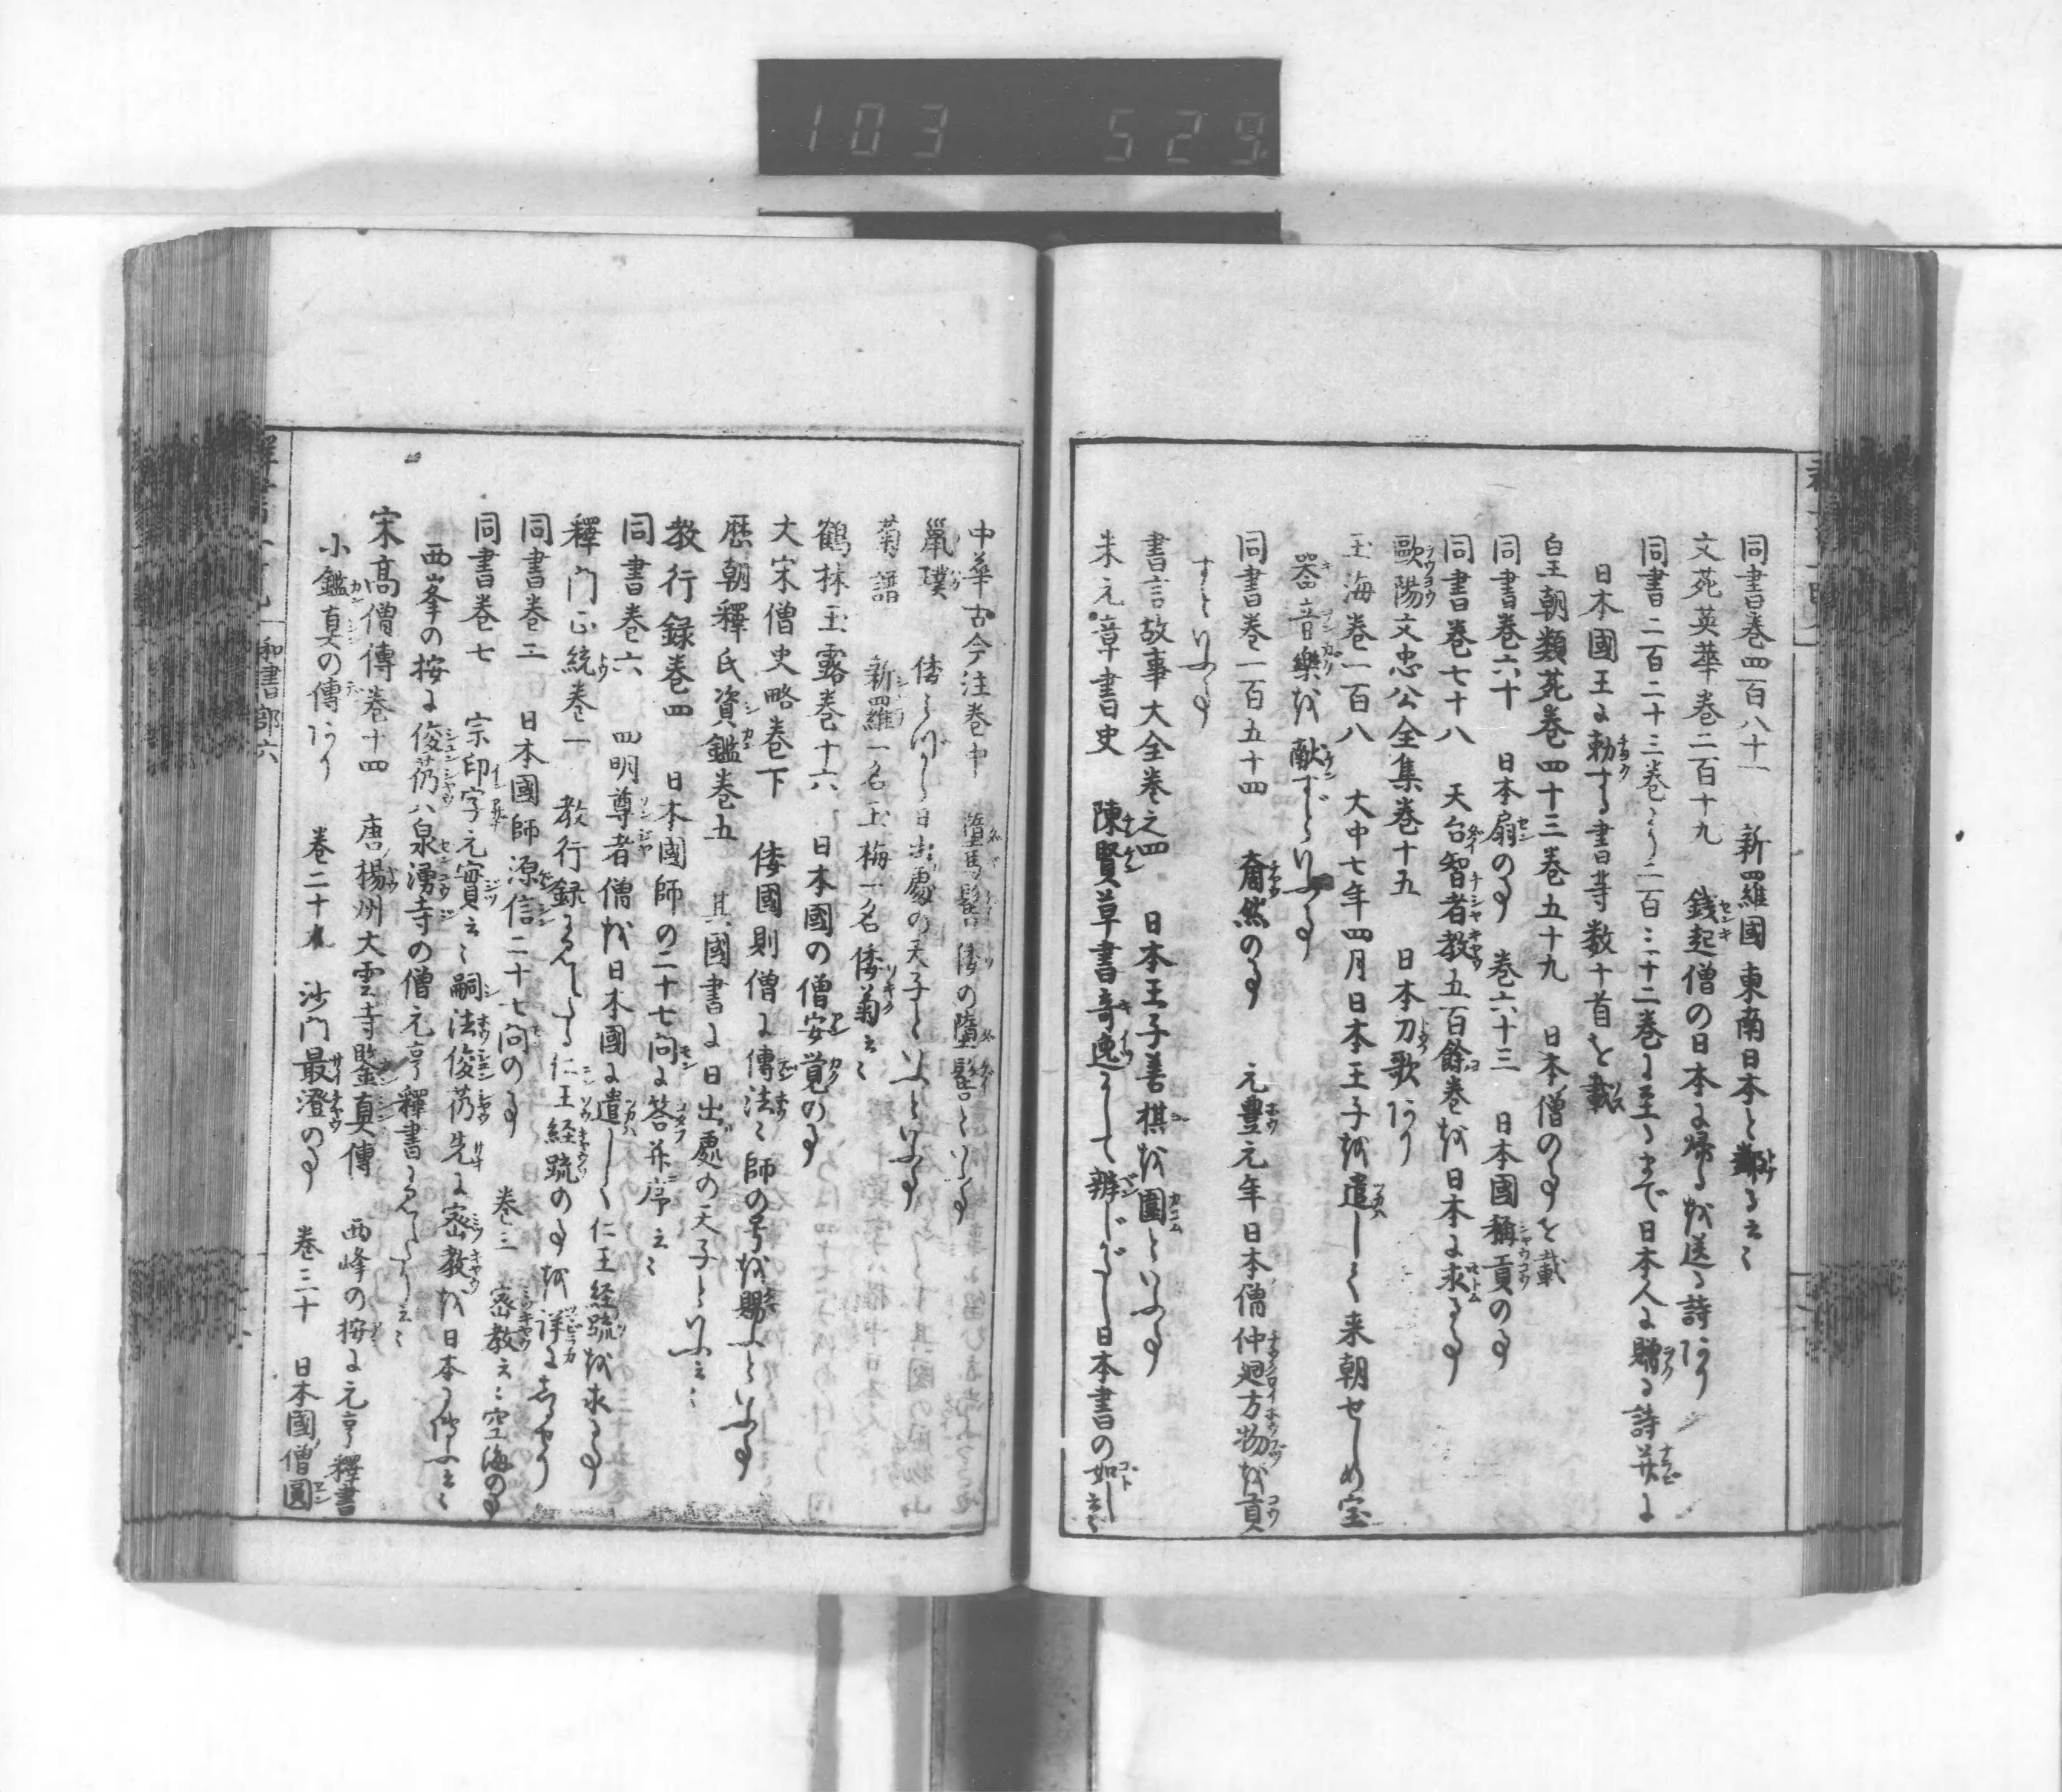 103 529
同書巻四百八十一 新羅國東南日本と鄰る云〻
文苑英華巻二百十九 錢起僧の日本に帰るを送る詩あり
同書二百二十三巻より二百三十二巻に至るまで日本人に贈る詩并に
日本國王に勅する書等数十首を載
皇朝類苑巻四十三巻五十九 日本僧の事を載
同書巻六十 日本扇の事 巻六十三 日本國稱貢の事
同書巻七十八 天台智者教五百餘巻を日本に求る事
歐陽文忠公全集巻十五 日本刀歌あり
玉海巻一百八 大中七年四月日本王子を遣して来朝せしめ宝
器音樂を獻ずといふ事
同書巻一百五十四 奝然の事 元豊元年日本僧仲廻方物を貢
すといふ事
書言故事大全巻之四 日本王子善棋を圍といふ事
米元章書史 陳賢草書奇逸にして辨じがたし日本書の如し云〻
中華古今注巻中 墮馬髻倭の墮髻といふ事
鼠璞 倭を
日出處の天子といふといふ事
菊譜 新羅一名玉梅一名倭菊云〻
鶴林玉露巻十六 日本國の僧安覚の事
大宋僧史略巻下 倭國則僧に傳法〻師の号を賜ふといふ事
歴朝釋氏資鑑巻五 其國書に日出處の天子といふ云〻
教行録巻四 日本國師の二十七問に答并序云〻
同書巻六 四明尊者僧を日本國に遣して仁王経疏を求る事
釋門正統巻一 教行録に見へたる仁王経疏の事を詳に
同書巻三 日本國師源信二十七問の事 巻三 密教云〻空海の事
同書巻七 宗印字元實云〻嗣法俊芿先に密教を日本に傳ふ云〻
西峯の按に俊芿ハ泉湧寺の僧元亨釋書に見へたり云〻
宋高僧傳巻十四 唐揚州大雲寺鑒真傳 西峰の按に元亨釋書
小鑑真の傳あり 巻二十九 沙門最澄の事 巻三十 日本國僧圓
和書部六